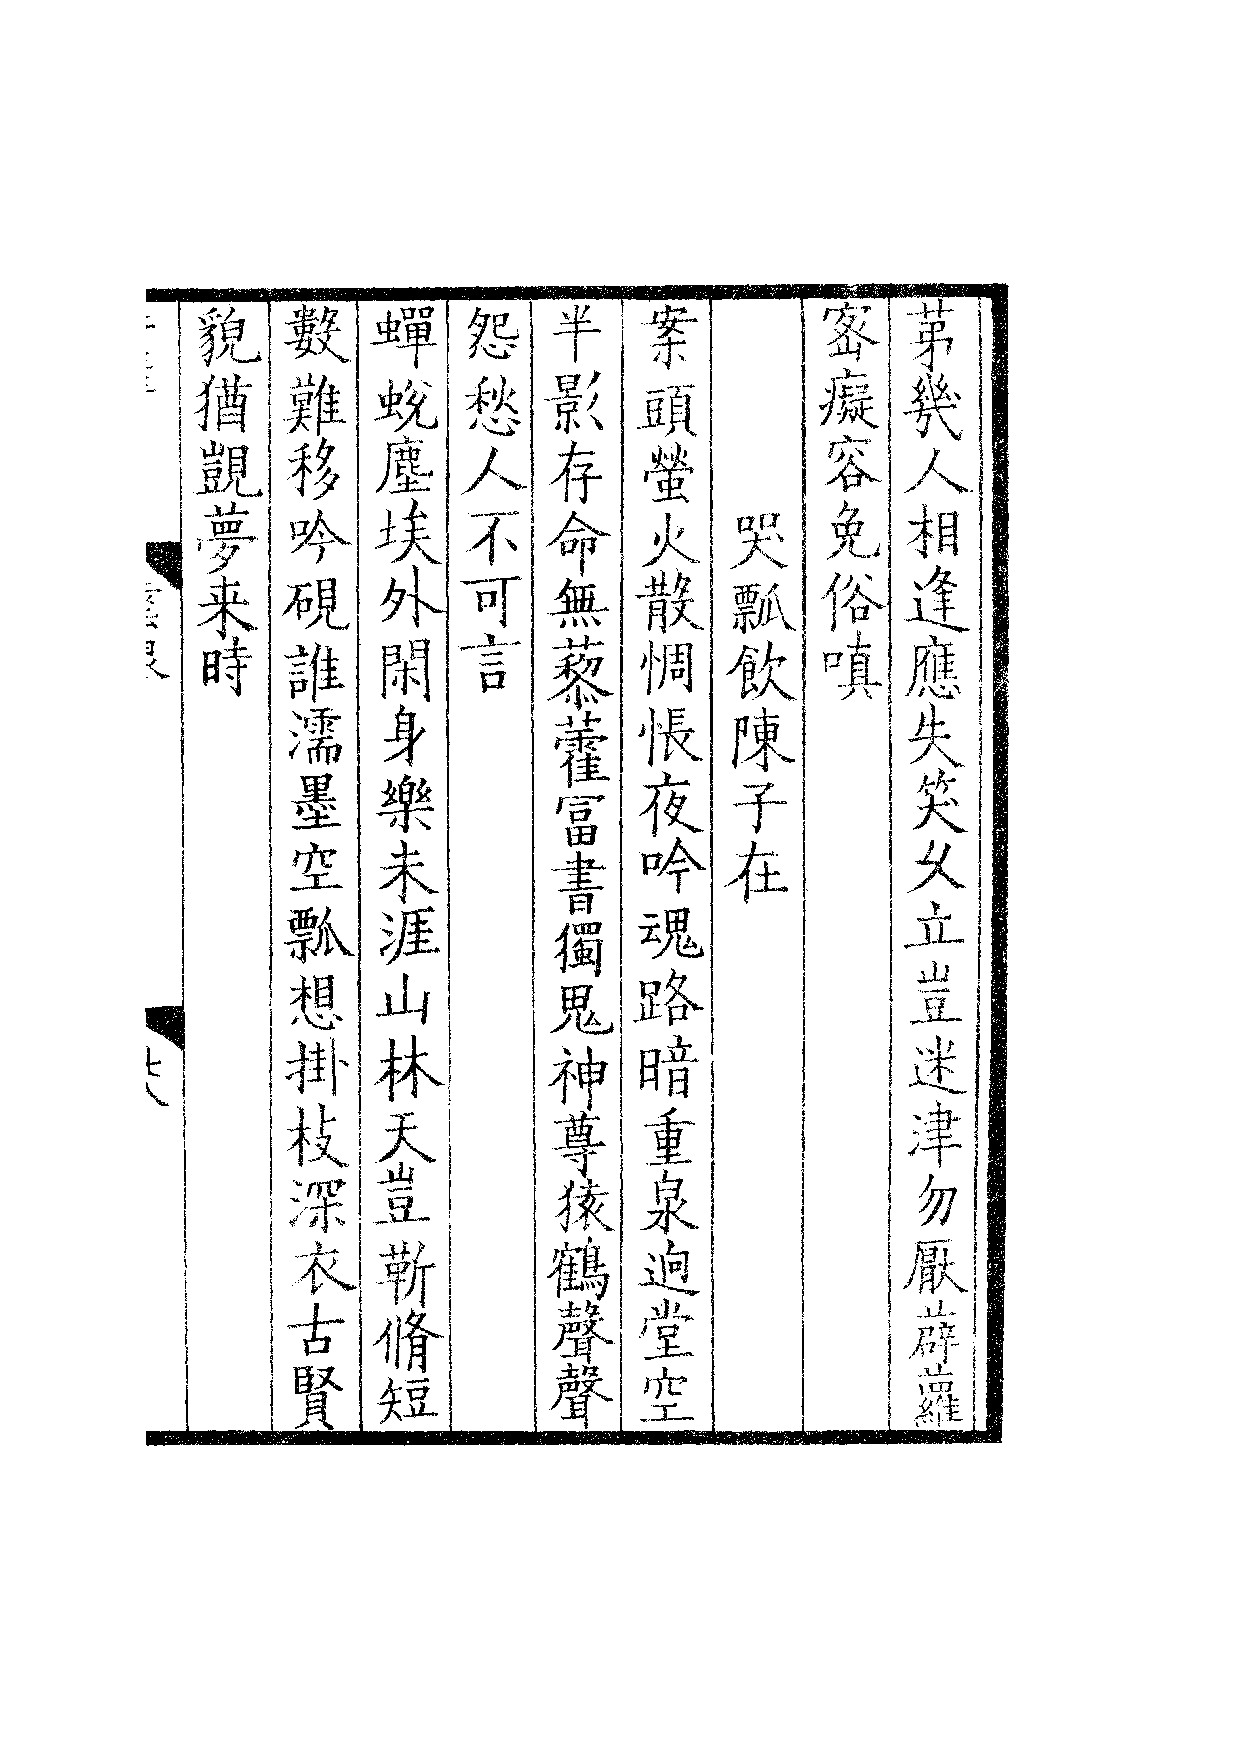 苐幾人相逢應失笑乆立豈迷津勿厭薜蘿
宻癡容免俗嗔
哭瓢飲陳子在
案頭螢火散惆悵夜吟魂路暗重泉逈堂空
半影存命無藜藿冨書獨鬼神尊猿鶴聲聲
怨愁人不可言
蟬蛻塵埃外閑身樂未涯山林天豈靳脩短
數難移吟硯誰濡墨空瓢想掛枝深衣古賢
貌猶覬夢来時